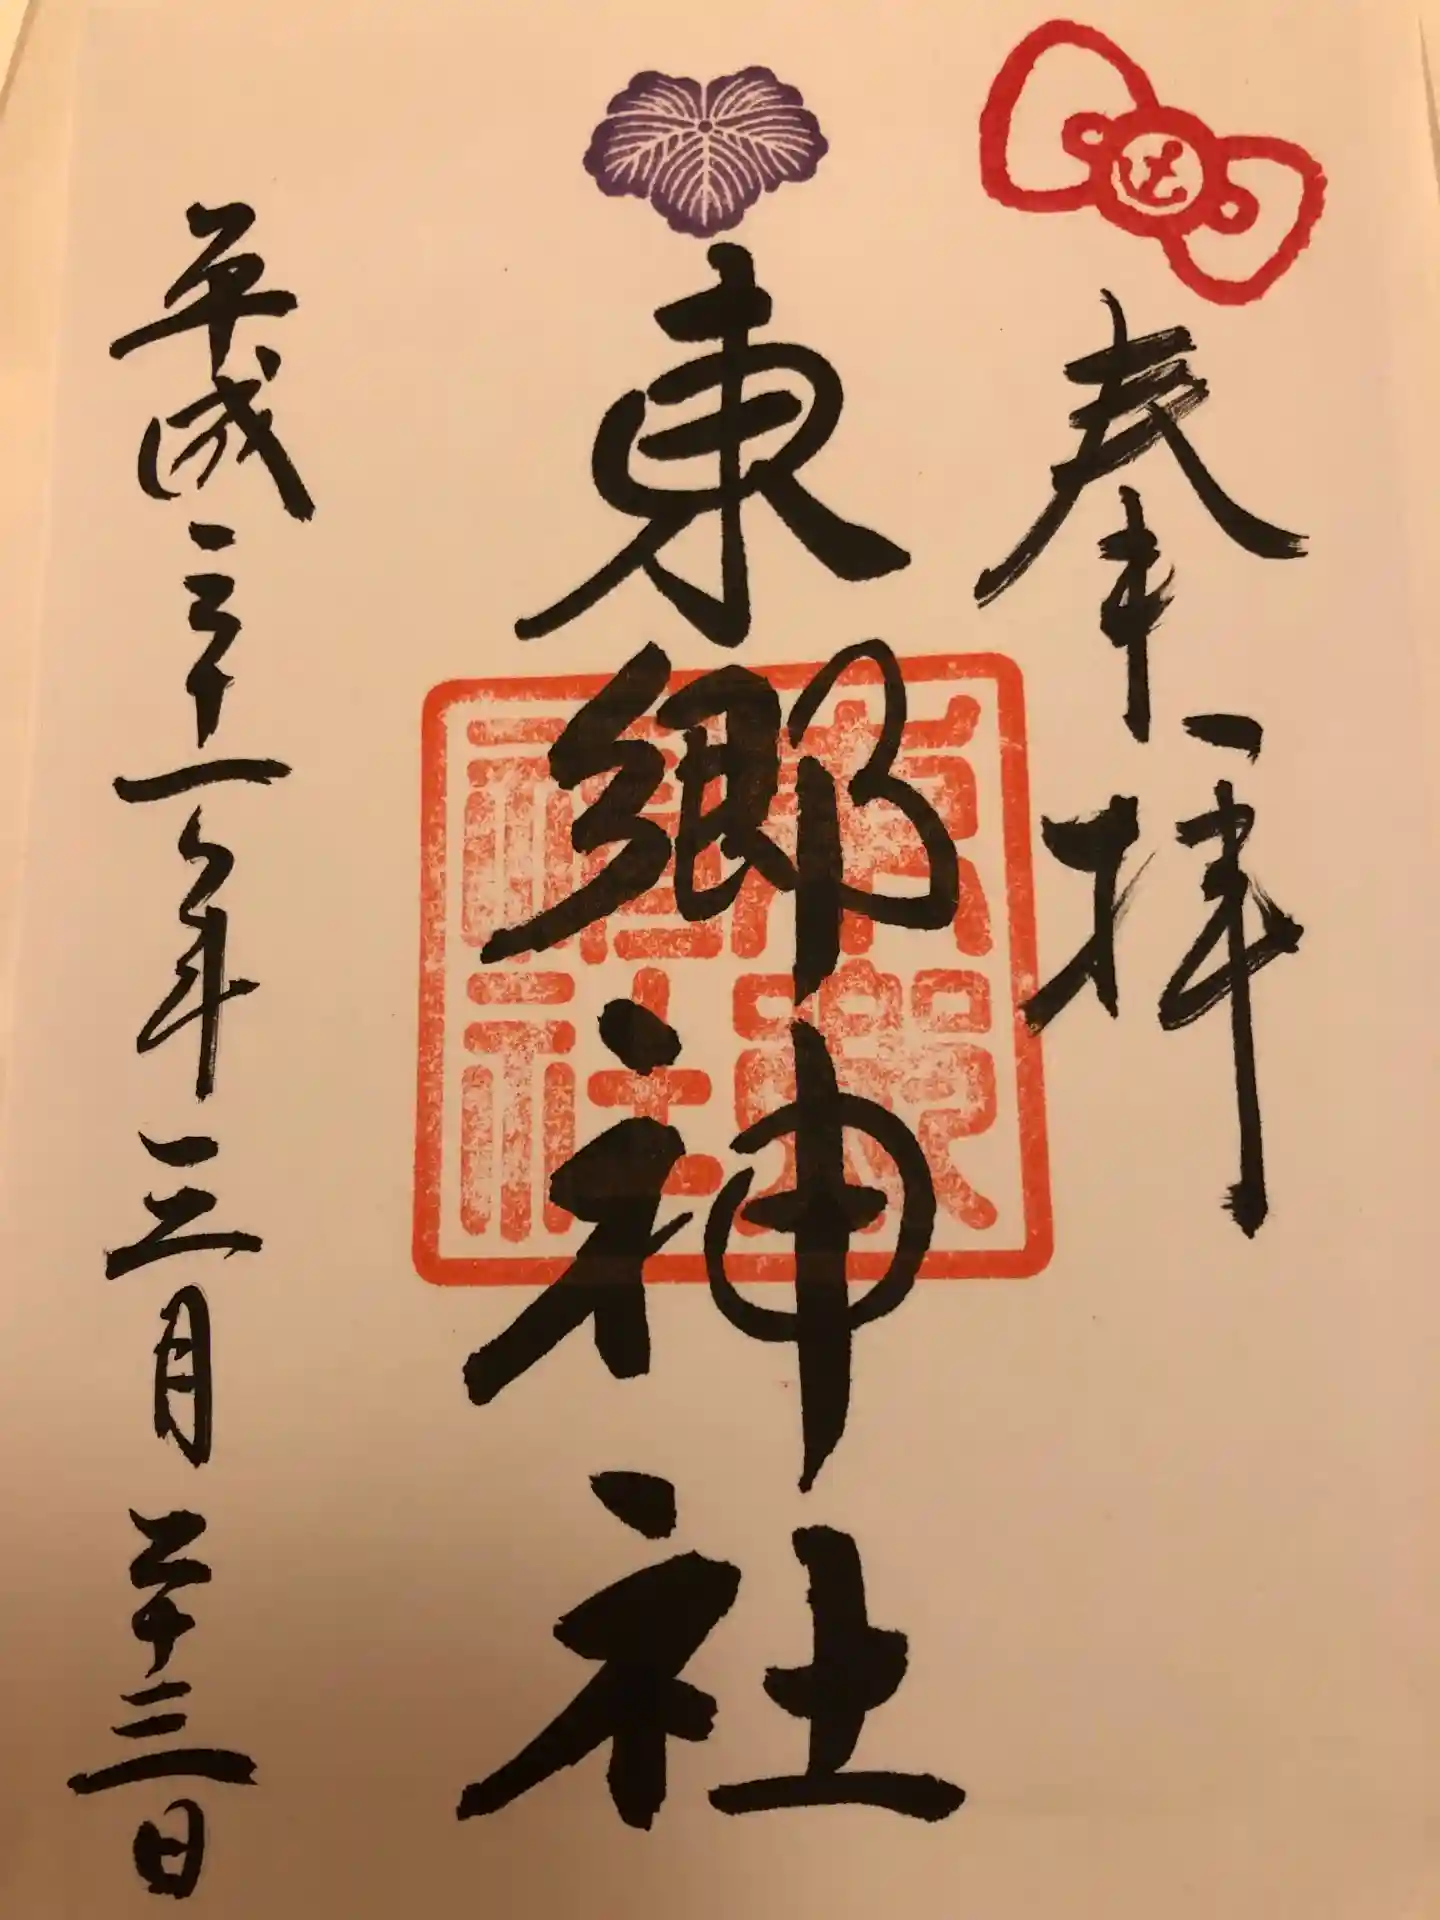 奉拝
東郷神社
東郷神社
平成三十一年三月二十三日